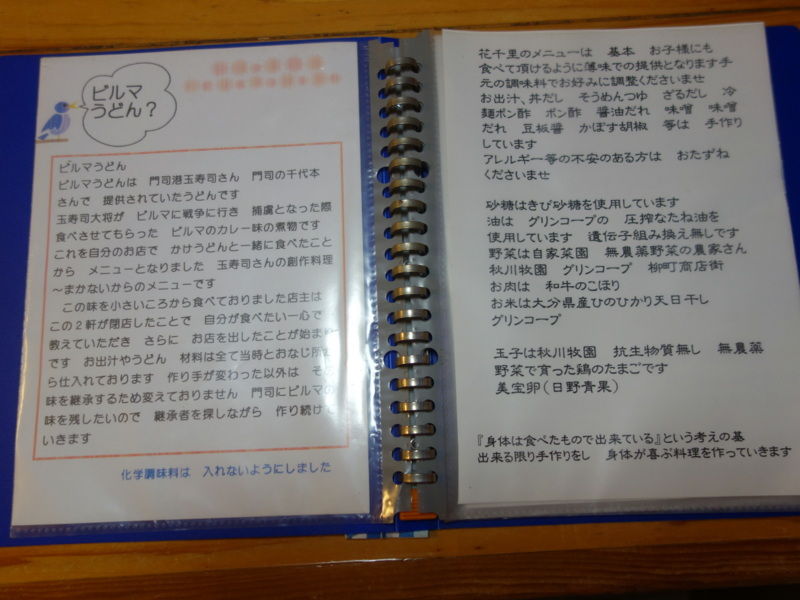 ビルマ
うどん？
ビルマうどん
ビルマうどんは　門司港玉寿司さん　門司の千代本
さんで　提供されていたうどんです
玉寿司大将が　ビルマに戦争に行き　捕虜となった際
食べさせてもらった　ビルマのカレー味の煮物です
これを自分のお店で　かけうどんと一緒に食べたこと
から　メニューとなりました　玉寿司さんの創作料理
～まかないからのメニューです
　この味を小さいころから食べておりました店主は
この２軒が閉店したことで　自分が食べたい一心で
教えていただき　さらに　お店を出したことが始まり
です　お出汁やうどん　材料は全て当時とおなじ所
ら仕入れております　作り手が変わった以外は　その
味を継承するため変えておりません　門司にビルマの
味を残したいので　継承者を探しながら　作り続けて
いきます
化学調味料は　入れないようにしました
花千里のメニューは　基本　お子様にも
食べて頂けるように薄味での提供となります手
元の調味料でお好みに調整くださいませ
お出汁、丼だし　そうめんつゆ　ざるだし　冷
麺ポン酢　ポン酢　醤油だれ　味噌　味噌
だれ　豆板醤　かぼす胡椒　等は　手作り
しています
アレルギー等の不安のある方は　おたずね
くださいませ
砂糖はきび砂糖を使用しています
油は　グリンコープの　圧搾なたね油を
使用しています　遺伝子組み換え無しです
野菜は自家菜園　無農薬野菜の農家さん
秋川牧園　グリンコープ　柳町商店街
お肉は　和牛のこほり
お米は大分県産ひのひかり天日干し
グリンコープ
玉子は秋川牧園　抗生物質無し　無農薬
野菜で育った鶏のたまごです
美宝卵（日野青果）
『身体は食べたもので出来ている』という考えの基
出来る限り手作りをし　身体が喜ぶ料理を作っていきます